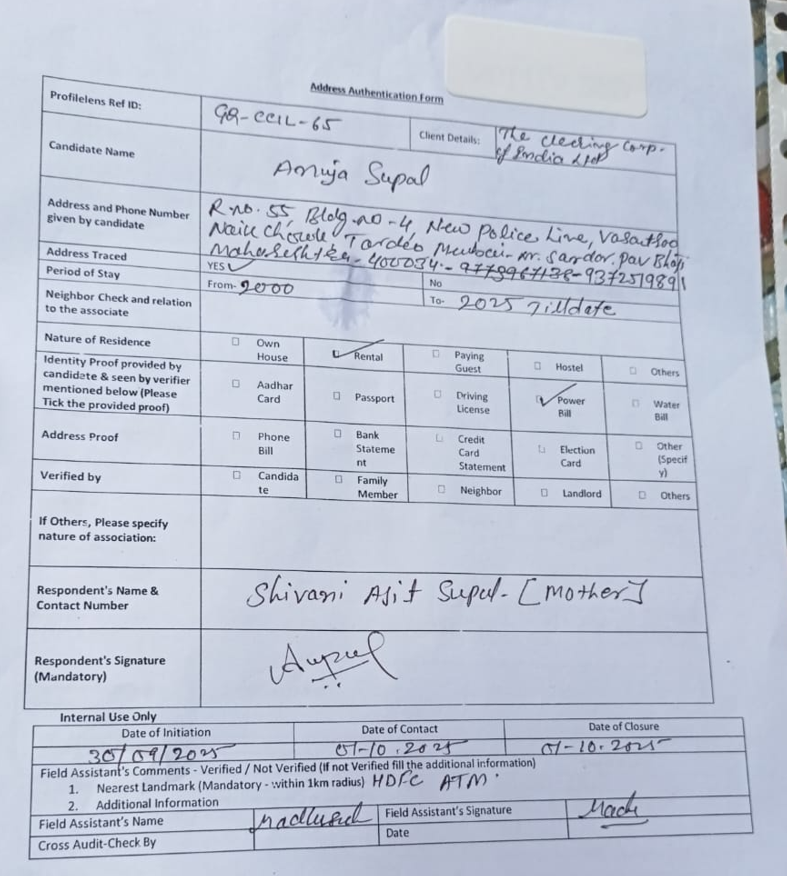 Address Authentication Form
Profilelens Ref ID: GR-CCIL-65 Client Details: The clearing Corp. of India Ltd
Candidate Name Anuja Supal
Address and Phone Number given by candidate R no. 55, Bldg no-4, New Police Line, Vasantrao
Naik Chowk Tardeo Mumbai- nr. Sardar. Pav Bhaji
Maharashtra - 400034.- 9773967138-9372519891
Address Traced YES ✓ No
Period of Stay From- 2000 To- 2025 Tilldate
Neighbor Check and relation to the associate
Nature of Residence ☐ Own House ☑ Rental ☐ Paying Guest ☐ Hostel ☐ Others
Identity Proof provided by candidate & seen by verifier mentioned below (Please Tick the provided proof) ☐ Aadhar Card ☐ Passport ☐ Driving License ☑ Power Bill ☐ Water Bill
Address Proof ☐ Phone Bill ☐ Bank Stateme nt ☐ Credit Card Statement ☐ Election Card ☐ Other (Specif y)
Verified by ☐ Candida te ☐ Family Member ☐ Neighbor ☐ Landlord ☐ Others
If Others, Please specify nature of association:
Respondent's Name & Contact Number Shivani Ajit Supal- [Mother]
Respondent's Signature (Mandatory)
Internal Use Only
Date of Initiation Date of Contact Date of Closure
30/09/2025 01-10.2025 01-10.2025
Field Assistant's Comments - Verified / Not Verified (If not Verified fill the additional information)
1. Nearest Landmark (Mandatory - within 1km radius) HDFC ATM.
2. Additional Information
Field Assistant's Name Field Assistant's Signature
Cross Audit-Check By Date